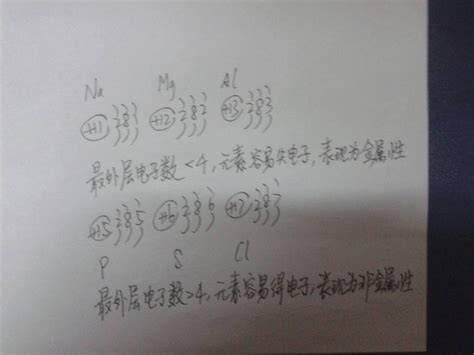 Na Mg Al
+11 2 8 1 +12 2 8 2 +13 2 8 3
最外层电子数<4,元素容易失电子,表现为金属性
+15 2 8 5 +16 2 8 6 +17 2 8 7
P S Cl
最外层电子数>4,元素容易得电子,表现为非金属性